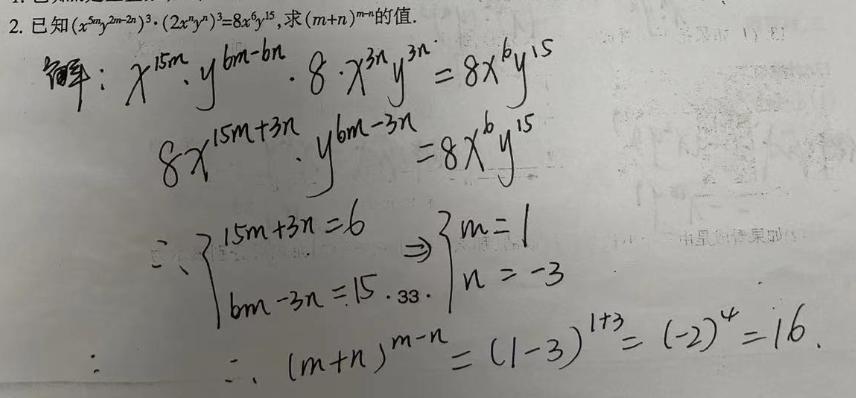 2. 已知(x^{5m}y^{2m-2n})^3·(2x^ny^n)^3=8x^6y^{15},求(m+n)^{m-n}的值.
解: x^{15m}·y^{6m-6n}·8·x^{3n}y^{3n}=8x^6y^{15}
8x^{15m+3n}·y^{6m-3n}=8x^6y^{15}
∴{15m+3n=6 ⇒ {m=1
6m-3n=15 n=-3
· 33 ·
∴(m+n)^{m-n}=(1-3)^{1+3}=(-2)^4=16.